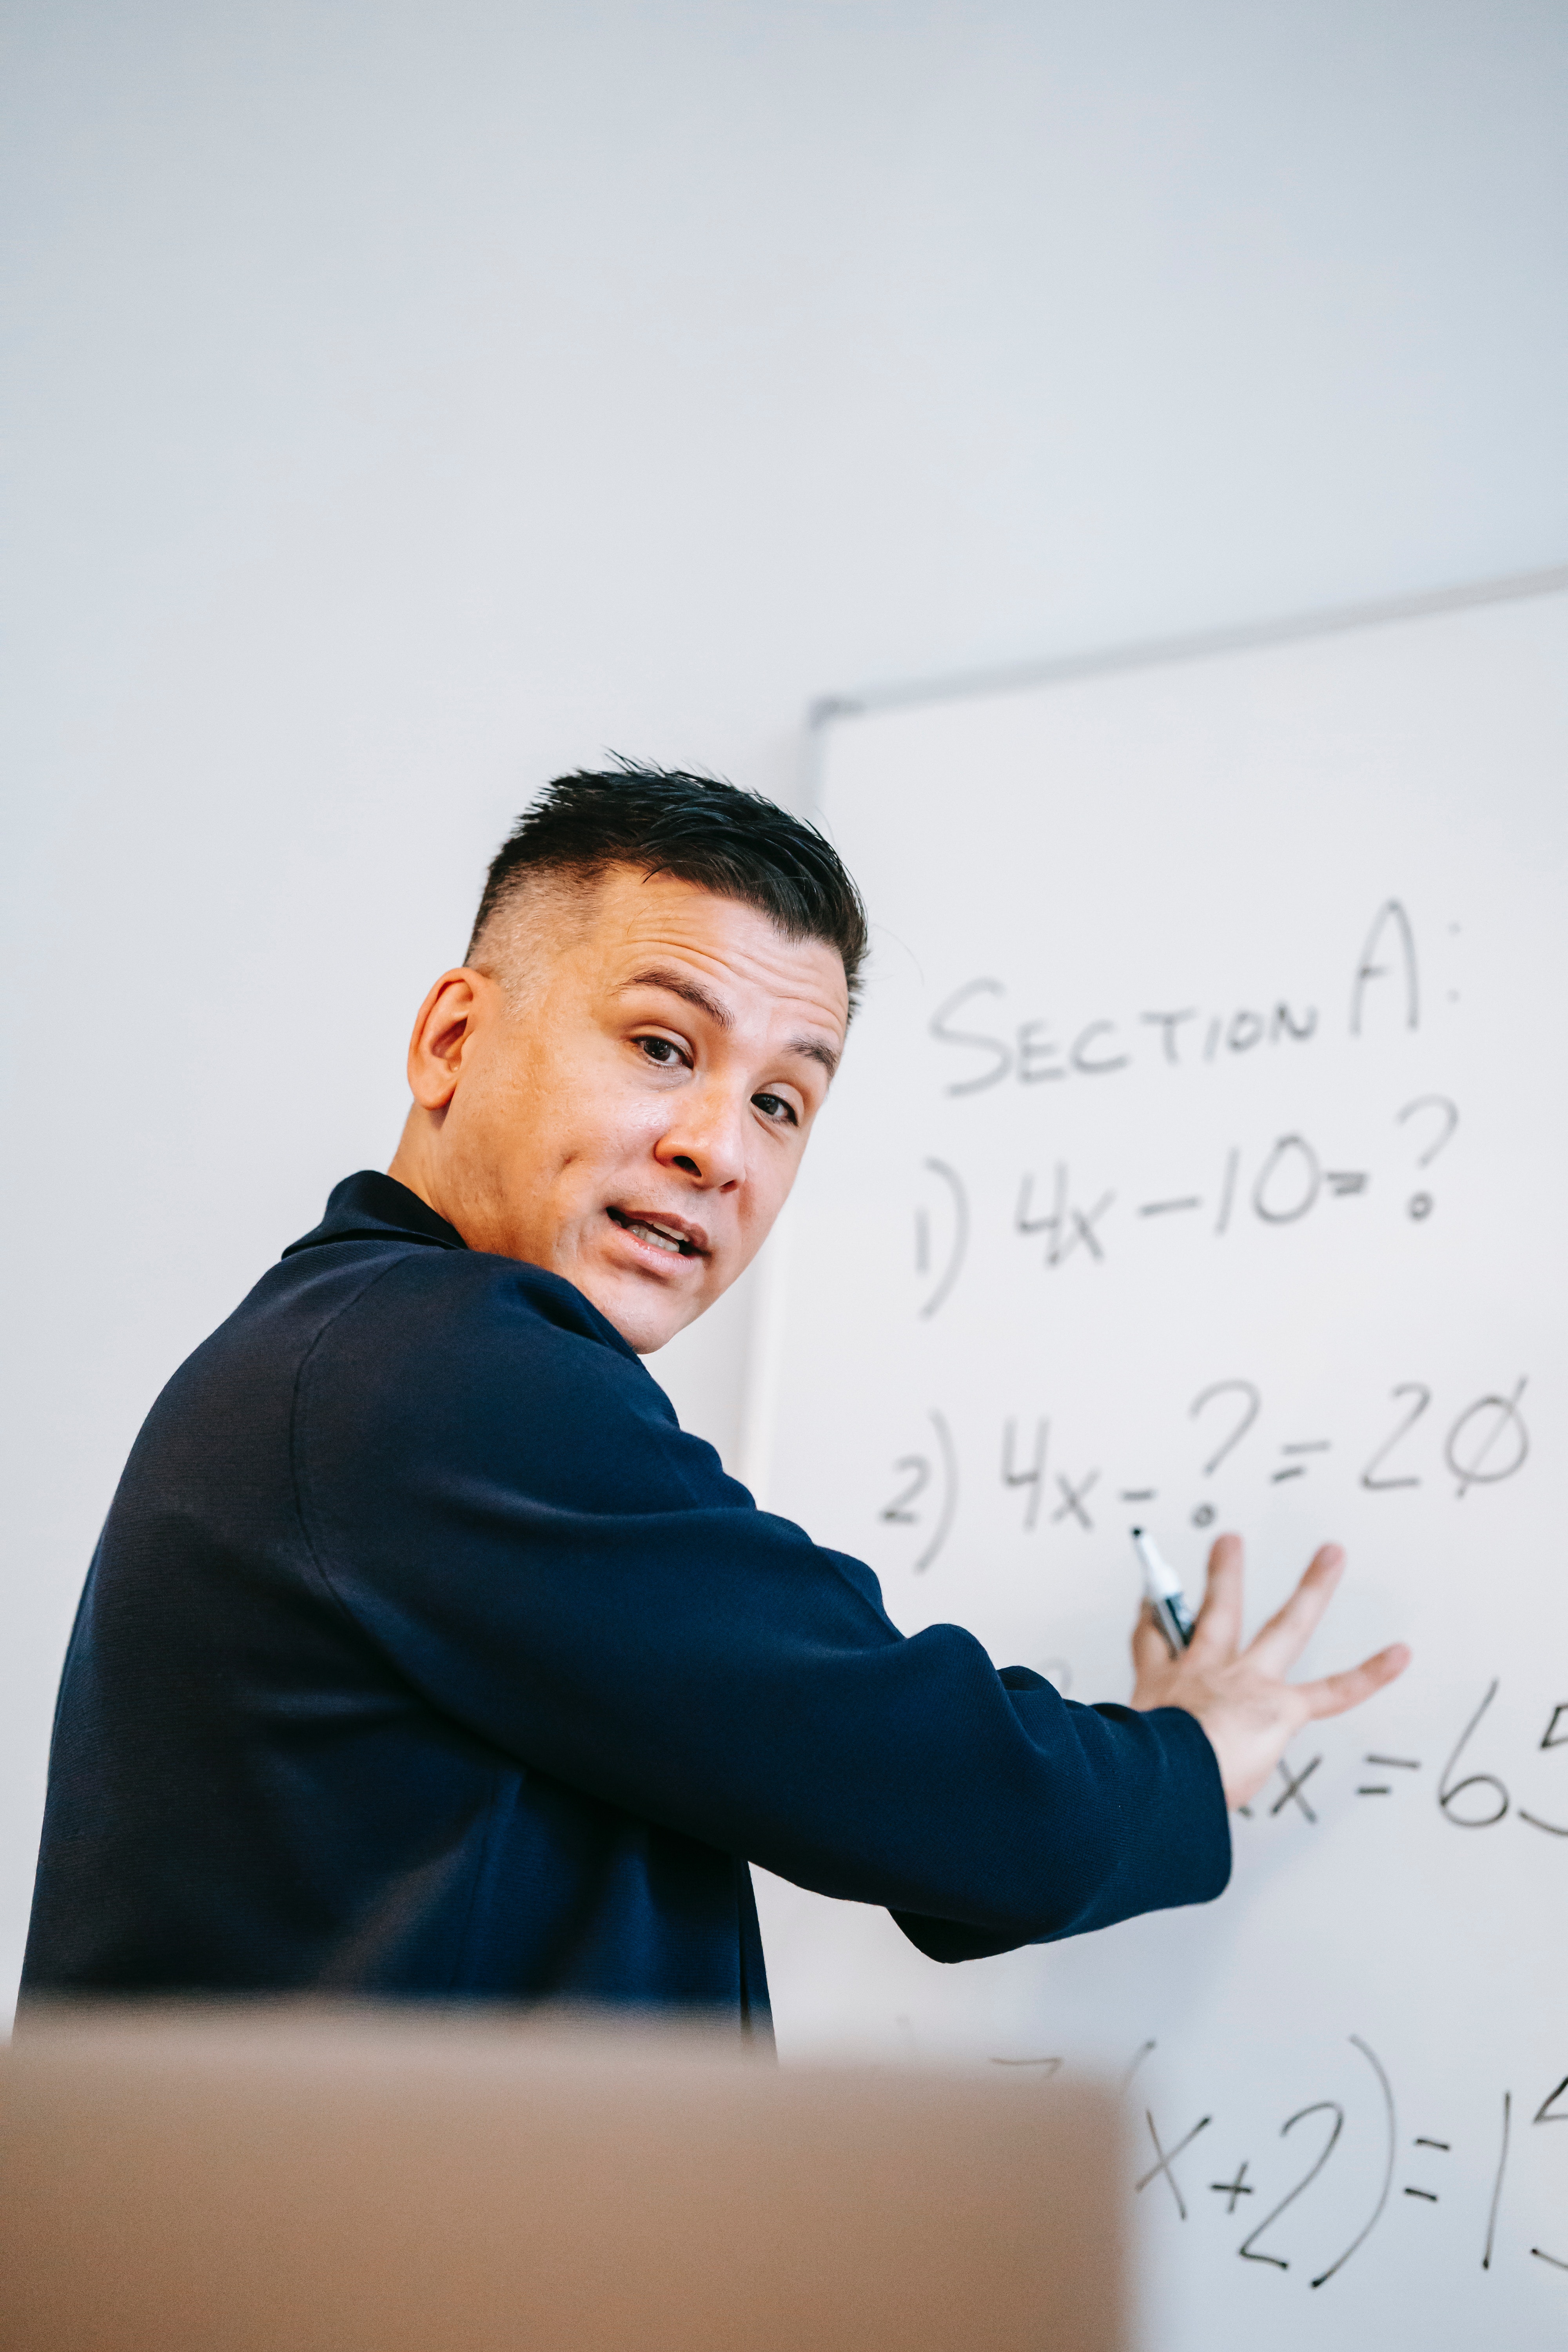 SECTION A:
1) 4x - 10 = ?
2) 4x - ? = 20
x = 65
(x+2) = 15